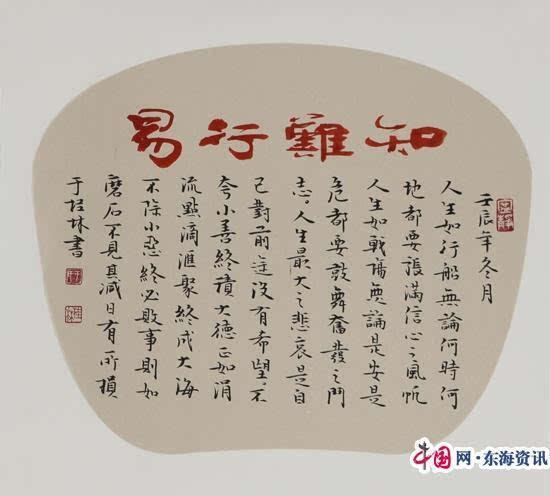 知難行易
壬辰年冬月
人生如行船無論何時何
地都要張滿信心之風帆
人生如戰場無論是安是
危都要鼓舞奮發之鬥
志。人生最大之悲哀是自
己對前途沒有希望。不
夸小善終積大德正如涓
流點滴滙聚終成大海
不除小惡終必敗事則如
磨石不見其減日有所損
于林書
中国网·东海资讯